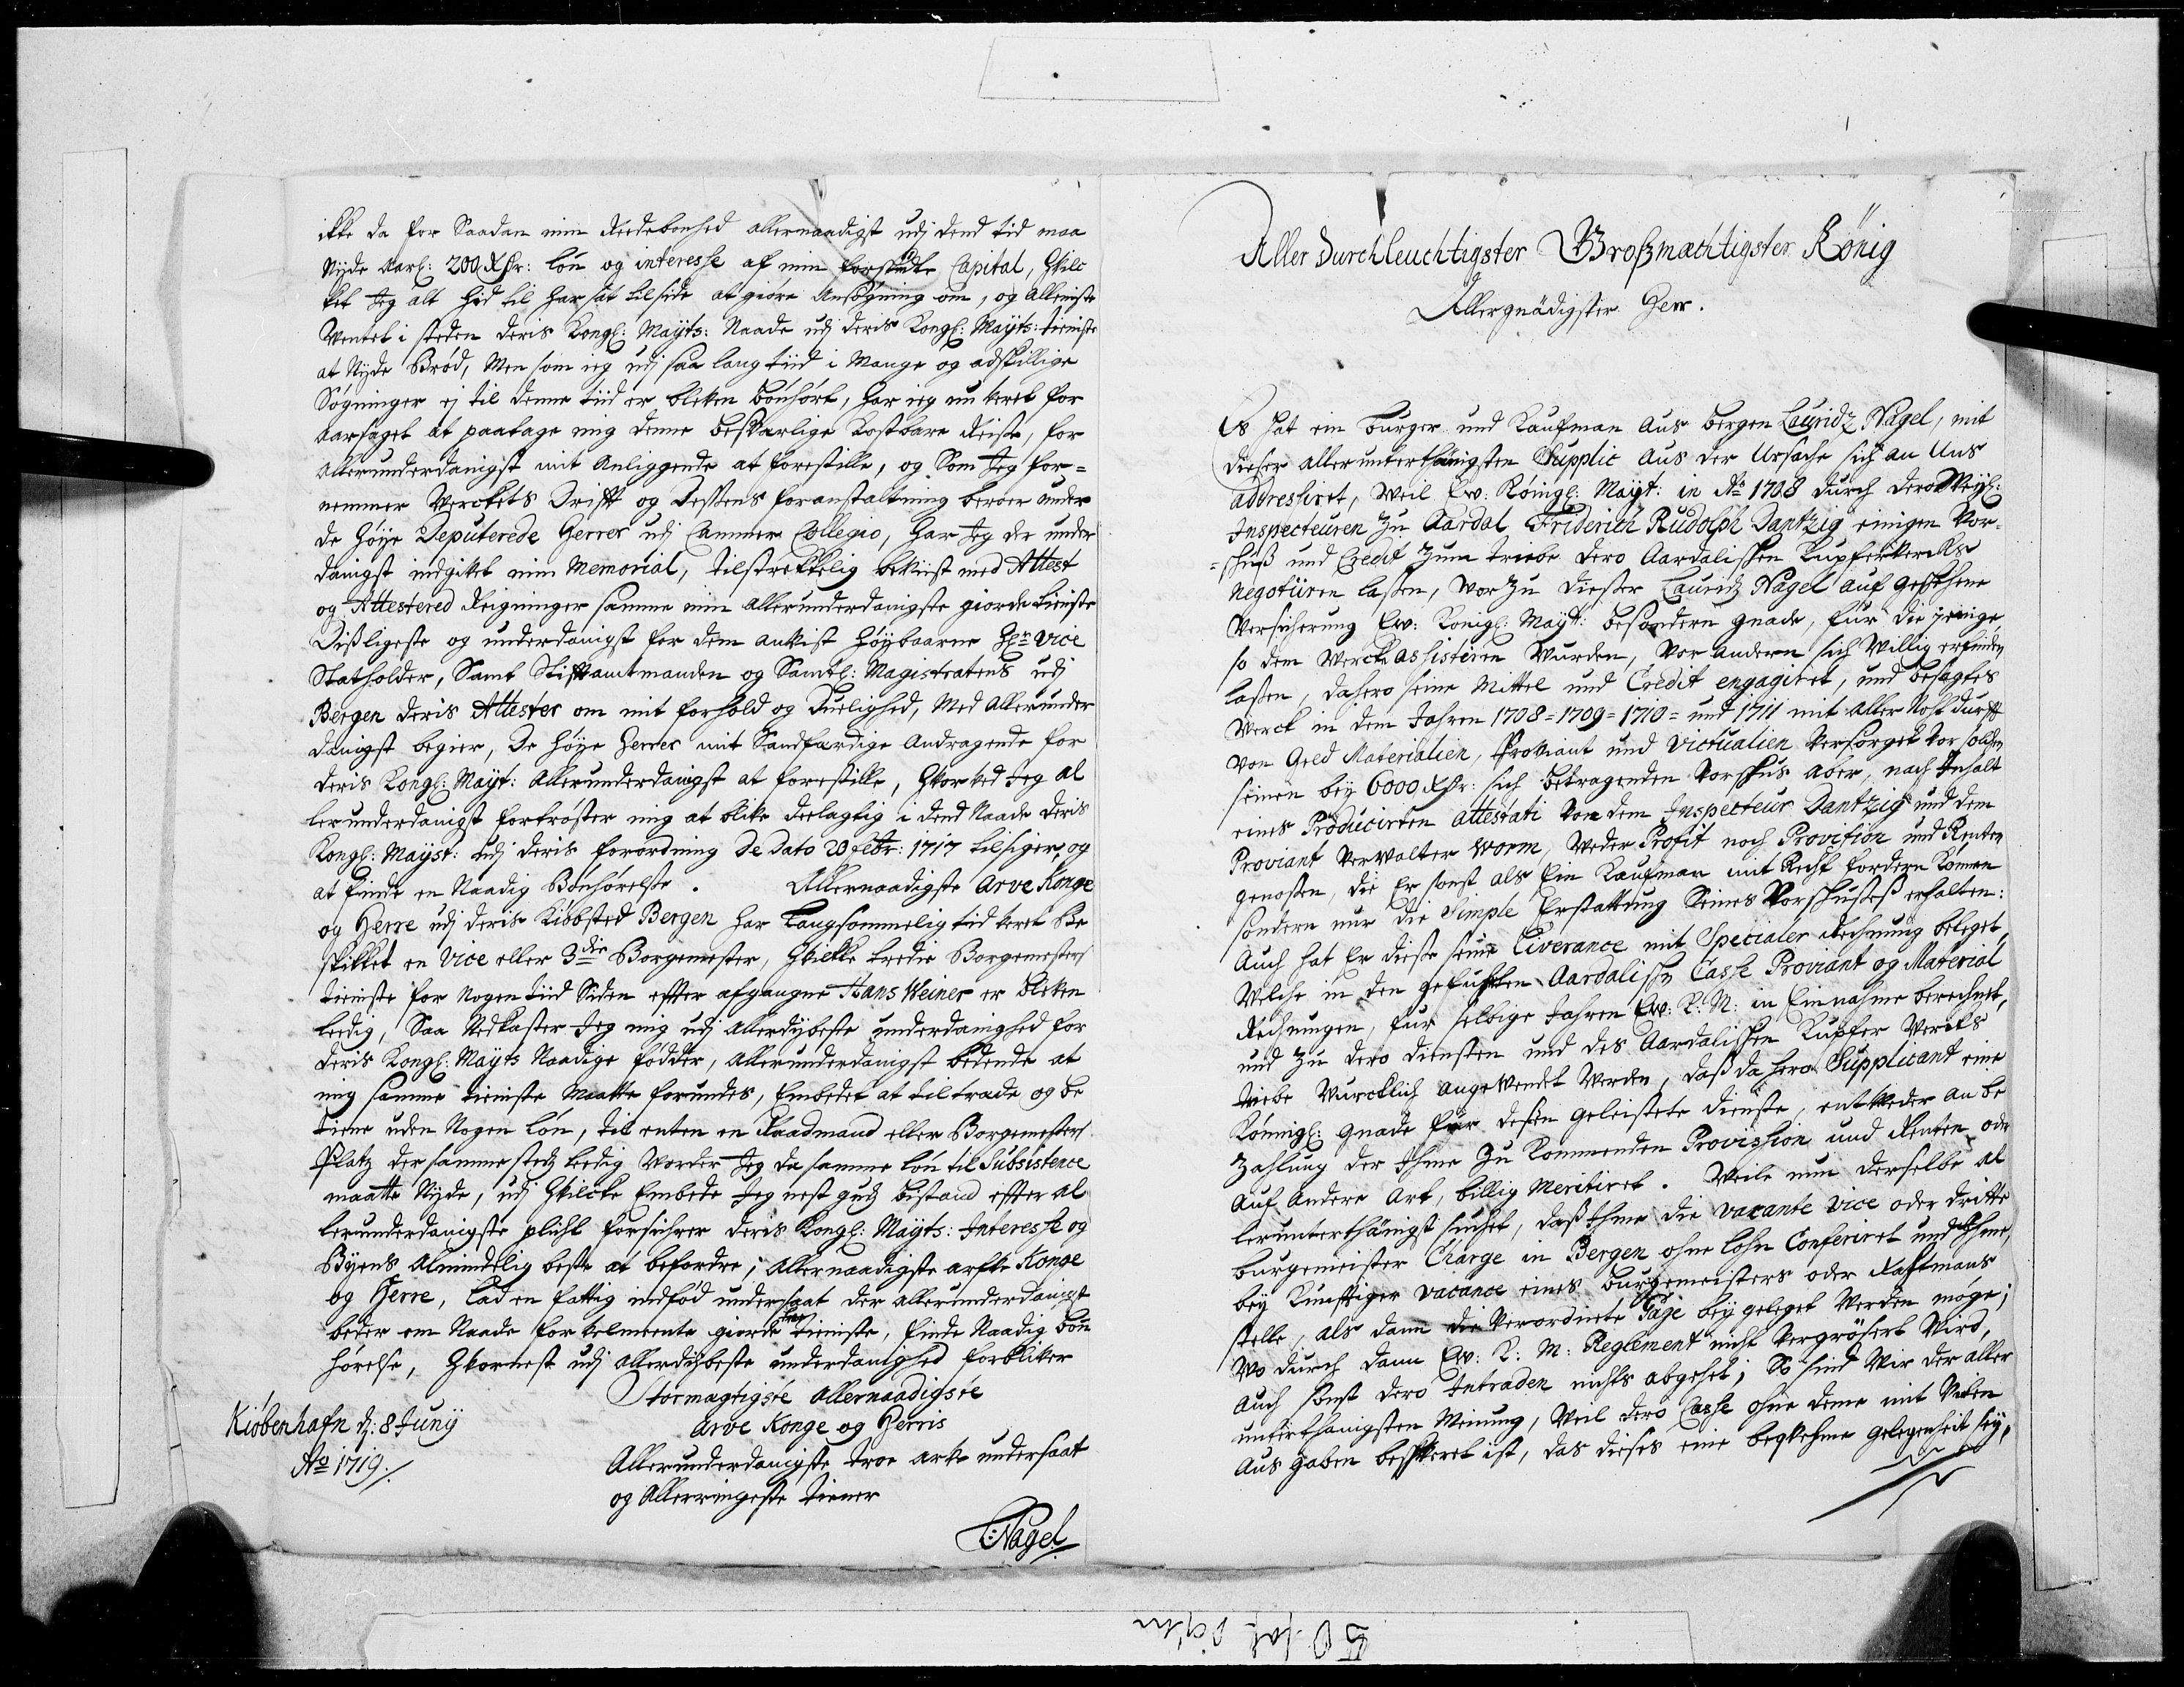 ikke da for Saadan min Reedebonhed allernaadigst udj dend tid maa
Nyde aarl: 200 Rdr: løn og interesse af min forstrakte Capital, Hvilc
ket Jeg alt hid til har sat tilside at giøre Ansøgning om, og alleniste
Ventet i steden deris Kongl: Mayts: Naade udj deris Kongl: Mayts: tieniste
at Nyde Brød, Men som ieg udj saa lang tiid i Mange og adskillige
Søgninger ej til denne tiid er bleven bønhørt, har ieg nu veret for
aarsaget at paatage mig denne beskvarlige kostbare Reise, for
Allerunderdanigst mit anliggende at forestille, og Som Jeg for=
nemmer Verckets Drift og Dessens foranstaltning beroer under
de høye Deputerede Herrer udj Cammer Collegio, har Jeg der under
danigst indgivet min Memorial, tilstrekkelig beviist med Attest
og Attestered Reigninger samme min allerunderdanigste giorde tieniste
Disligeste og underdanigst for dem anvist Høybaarne Hr: Vice
Statholder, Samt Stiftamtmanden og Samtl: Magistratens udj
Bergen deris Attester om mit forhold og Duelighed, Med Allerunder
danigst begier, De høye Herrer mit Sandfærdige andragende for
deris Kongl: Mayt: allerunderdanigst at forestille, Hvorved Jeg al
lerunderdanigst fortrøster mig at blive deelagtig i dend Naade deris
Kongl: Mayst: udj deris forordning de dato 20 Febr: 1717 tilsiger, og
at finde en Naadig Bønhørelse. Allernaadigste Arve Konge
og Herre udj deris Kiøbsted Bergen har Langsommelig tid veret Be
skikket en Vice eller 3die Borgemester, Hvilkke tredie Borgemesters
tieniste for Nogen tiid Siden effter afgangne Hans Weiner er bleven
leedig, Saa Nedkaster Jeg mig udj allerdybeste underdanighed for
deris Kongl: Mayts Naadige fødder, allerunderdanigst bedende at
mig samme tieniste Maatte forundes, Embedet at tiltræde og be
tiene uden Nogen løn, til enten en Raadmand eller Borgemesters
Platz der samme steds leedig Vorder Jeg da samme løn til Subsistence
maatte Nyde, udj Hvilcke Embede Jeg nest guds bistand effter al
lerunderdanigste plicht forsichrer deris Kongl: Mayts: Interesse og
Byens almindelig beste at befordre; Allernaadigste arfve Konge
og Herre, Lad en fattig indfød undersaat der allerunderdanigst
beder om Naade for velmeente giorde troe tieniste, finde Naadig bøn
hørelse, Hvornest udj allerdybeste underdanighed forbliver
Stormagtigste Allernaadigste
Arve Konge og Herris
Kiøbenhafn d: 8 Junÿ
Ao 1719.
Allerunderdanigste troe arve undersaat
og Allerringeste tiener
L: Nagel
Aller Durchleuchtigster Großmæchtigster König
Allergnädigster Herr.
Es hat ein burger und Kaufman aus bergen Lauridz Nagel, mit
dieser allerunterthänigsten Supplic aus der Ursache sich an Uns
addressiret, Weil Ew: Königl: Mayt: in Ao 1708 durch dero
Inspecteuren Zu Aardal Friderich Rudolph Dantzig einigen Vor=
=schuß und Credit Zum triebe dero Aardalischen Kupferwercks
negotiiren lassen, Wor Zu dieser Lauridz Nagel auf geschehene
Versicherung Ew: Königl: Mayt: besondern gnade, für die jenige
so dem Wercke assistiren Wurden, Vor andern sich Willig erfinden
lassen, dahero seine Mittel und Credit engagiret, und besagtes
Werck in dem Jahren 1708=1709=1710= und 1711 mit aller Nohtdurfft
von Geld Materialien, Proviant und Victualien Versorget Vor solchen
seinen bey 6000 Rdr: sich betragenden Vorschus aber, nach Inhalt
eines Producirten attestati Von dem Inspecteur Dantzig und dem
Proviant Verwalter Worm, Weder Profit noch Provision und Renten
genossen, die Er sonst als Ein Kaufman mit Recht fordern können
sondern nur die Simple Erstattung Seines Vorschusses erhalten:
Auch hat Er diese seine Liverance mit Specialer Rechnung beleget,
Welche in den gefuhrten Aardalischen Casse Proviant og Material
Rechnungen, für selbige Jahren Ew: K: M: in Einnahme berechnet,
und Zu dero diensten und des Aardalischen Kupfer Wercks
triebe Wurcklich angewendet Werden, daß dahero Supplicant eine
Königl: gnade für dessen geleistete dienste, entweder an be
Zahlung der Ihme Zu kommenden Provission und Renten oder
Auf andere Art, billig Meritiret. Weile nun derselbe al
lerunterthänigst suchet, daß Ihme die vacante Vice oder dritte
burgemeister Charge in Bergen ohne lohn Conferiret und Ihme
bey Kunfftiger vacance eines burgemeisters oder Rahtmans
stelle, als dann die Verordnete Gage bey geleget Werden möge;
Wo durch dann Ew: K: M: Reglement nicht Vergrößert Wird,
Auch sonst dero Intraden nichts abgehet; So sind Wir der aller
unterthänigsten Meinung, Weil dero Casse ohne deme mit Vielen
Ausgaben beschweret ist, das dieses eine beqwehme gelegenheit sey,